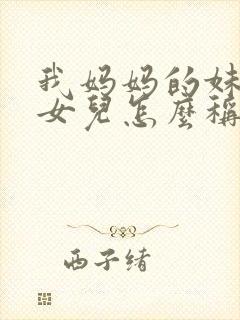 我妈妈的妹
女兒怎麼稱
西子绪